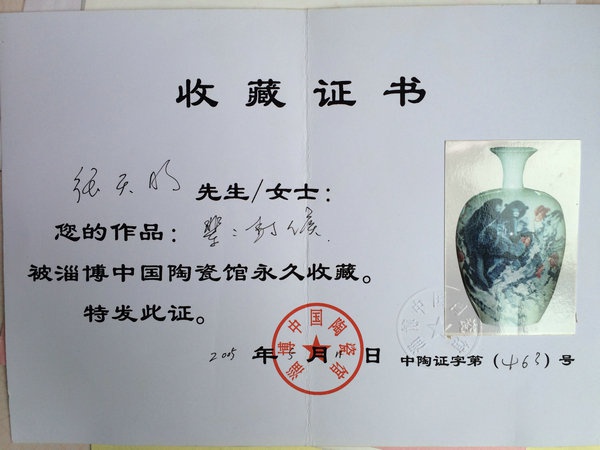 收藏证书
张天明 先生/女士：
您的作品：辈辈封侯
被淄博中国陶瓷馆永久收藏。
特发此证。
2005 年 5 月 11 日
中陶证字第（463）号
淄博中国陶瓷馆